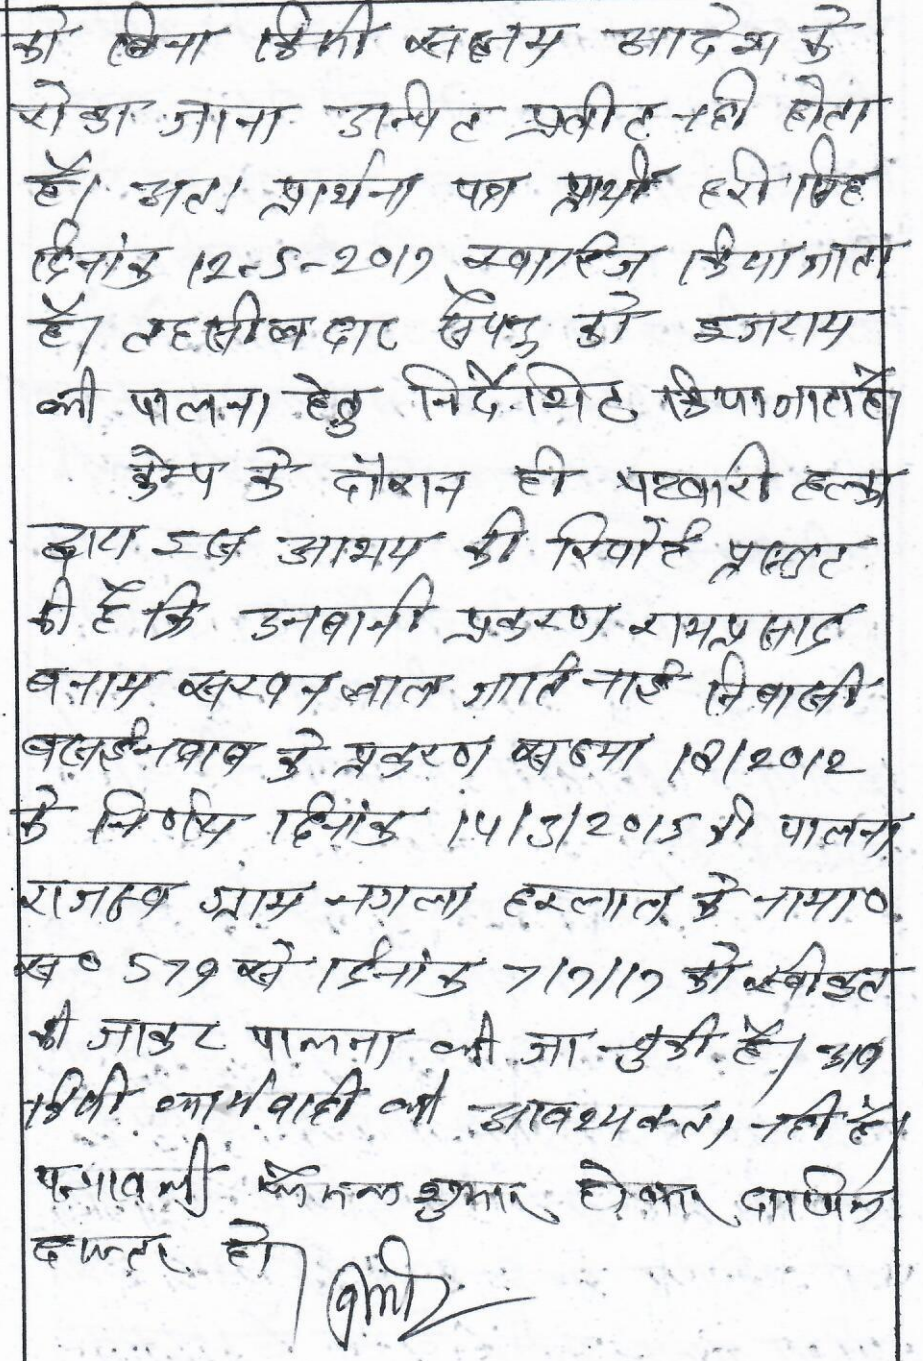 को बिना किसी सक्षम आदेश के
रोका जाना उचित प्रतीत नही होता
है। अतः प्रार्थना पत्र प्रार्थी हरीसिंह
दिनांक 12-5-2017 खारिज किया जाता
है। तहसीलदार सैंपऊ को इजराय
की पालना हेतु निर्देशित किया जाता है।
केम्प के दौरान ही पटवारी हल्का
द्वारा इस आशय की रिपोर्ट प्रस्तुत
की है कि उनबानी प्रकरण रामप्रसाद
बनाम सरवनलाल जाति नाई निवासी
बसईनवाब के प्रकरण संख्या 18/2012
के निर्णय दिनांक 14/3/2015 की पालना
राजस्व ग्राम नगला हरलाल के नामा०
स० 579 से दिनांक 7/7/17 को स्वीकृत
की जाकर पालना की जा चुकी है। अब
किसी कार्यवाही की आवश्यकता नही है।
पत्रावली फैसल शुमार होकर दाखिल
दफ्तर हो।